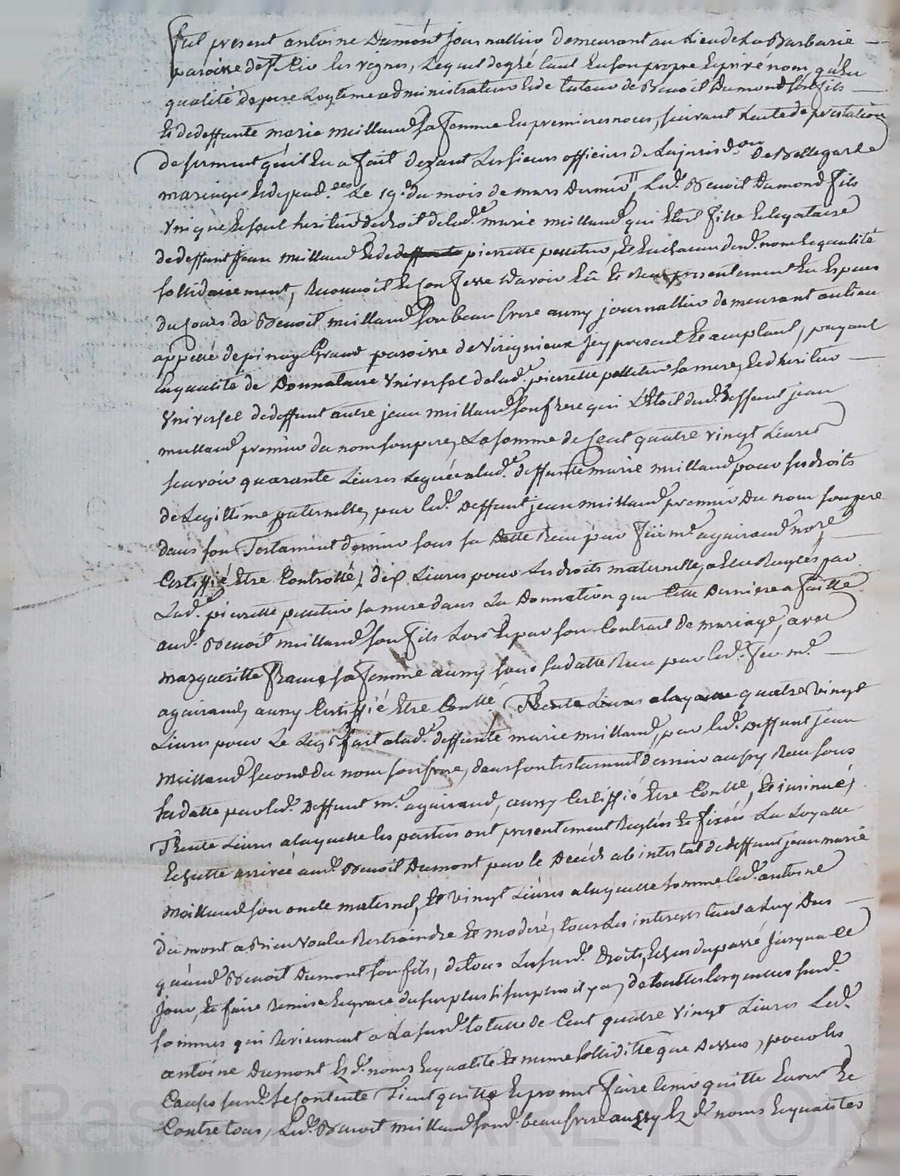 fut present antoine Dumont journallier demeurant au lieu de la Barbarie
paroisse de St les vignes, lequel de gré tant en son propre et privé nom, qu'en
qualité de pere legitime administrateur et de tuteur de Benoit Dumond son fils
et de deffunte marie meilland sa femme en premieres noces, suivant l'acte de prestation
de serment qu'il en a fait devant Les sieurs officiers de la juris.on de Bellegarde
Le 19e du mois de mars dernier Led. Benoit Dumond fils
unique et seul heritier de droit de lad.e marie meilland qui etoit fille et legataire
de deffunt jean meilland et de pierrette et en chacun desd. nom et qualité
sollidairement, Reconnoit et confesse d'avoir eû et Reçu presentement en especes
du Cours de Benoit meilland son beau frere aussy journallier demeurant au lieu
appellé d'epinay paroisse de Viregnieux jcy present et acceptant, payant
en qualité de Donnataire universel de lad.e pierrette sa mere, et d'heritier
universel de deffunt autre jean meilland son frere qui l'etoit dud. deffunt jean
meilland premier du nom son pere, La somme de Cent quatre vingt Livres
scavoir quarante Livres leguée a lad.e deffunte marie meilland pour ses droits
de legittime paternelle, par led. deffunt jean meilland premier du nom son pere
dans son Testament dernier sous sa datte Reçu par feu me aguiraud no.re
Certiffié être Controllé, dix Livres pour les droits maternelle, a elle Reglés par
Lad.e pierrette sa mere dans La Donnation que Cette Derniere a faitte
aud. Benoit meilland son fils Lors et par son Contrat de mariage, avec
margueritte france sa femme aussy sous sa datte Recu par led. feu me
aguiraud, aussy Certiffié être Contlé, quatre vingt
Livres pour Le Legs fait a lad.e deffunte marie meilland, par led. deffunt jean
Meilland second du nom son frere, dans son testament dernier aussy Recu sous
sa datte par led. deffunt me aguiraud, aussy Certiffié être Contlé, et insinué,
Trente Livres a laquelle les parties ont presentement Reglés et fixés La
Echutte arrivée aud. Benoit Dumont par le Décés ab intestat de deffunt jean marie
Meilland son oncle maternel, et vingt Livres a laquelle somme led. antoine
dumont a bien voulu Restraindre et moderé, tous les interets tant a luy Dus
qu'aud. Benoit Dumont son fils, de tous Les sud. Droits, Echus du passé jusqu'a ce
jour, et faire Remise et grace du surplus si surplus il y a, de touttes lesquelles sud.
sommes qui Reviennent a La sud. totalle de Cent quatre vingt Livres Led.
antoine Dumont esd. noms et qualité et meme solliditté que Dessus, pour les
Causes sud. se contente Tient quitte et promet faire tenir quitte Envers et
Contre tous, Led. Benoit meilland son beau frere aussy ez d. noms et qualités